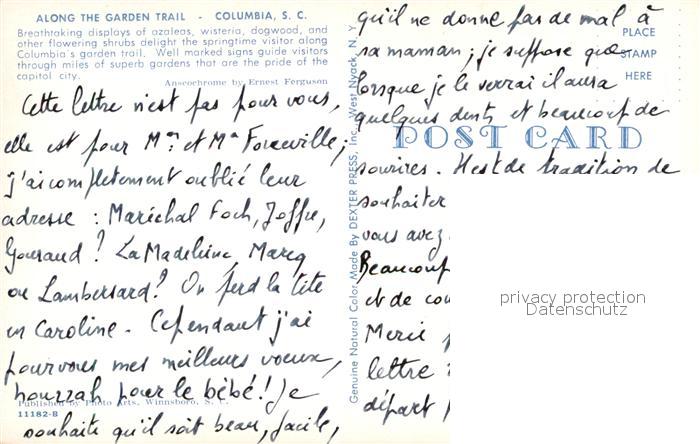 ALONG THE GARDEN TRAIL - COLUMBIA, S. C.
Breathtaking displays of azaleas, wisteria, dogwood, and
other flowering shrubs delight the springtime visitor along
Columbia's garden trail. Well marked signs guide visitors
through miles of superb gardens that are the pride of the
capitol city.
Anscochrome by Ernest Ferguson
Cette lettre n'est pas pour vous,
elle est pour Mr et Me Forceville;
j'ai completement oublié leur
adresse : Maréchal Foch, Joffre,
Gouraud ? La Madeleine, Marcq
ou Lambersard ? On perd la tête
en Caroline. Cependant j'ai
pour vous mes meilleurs voeux,
hourrah pour le bébé ! Je
souhaite qu'il soit beau, facile,
Published by Photo Arts, Winnsboro, S. C.
11182-B
Genuine Natural Color Made By DEXTER PRESS, Inc., West Nyack, N. Y.
qu'il ne donne pas de mal à
sa maman ; je suppose que
lorsque je le verrai il aura
quelques dents et beaucoup de
sourires. Il est de tradition de
souhaiter
vous avez
Beaucoup
et de
Merci
lettre
départ
PLACE
STAMP
HERE
POST CARD
privacy protection
Datenschutz